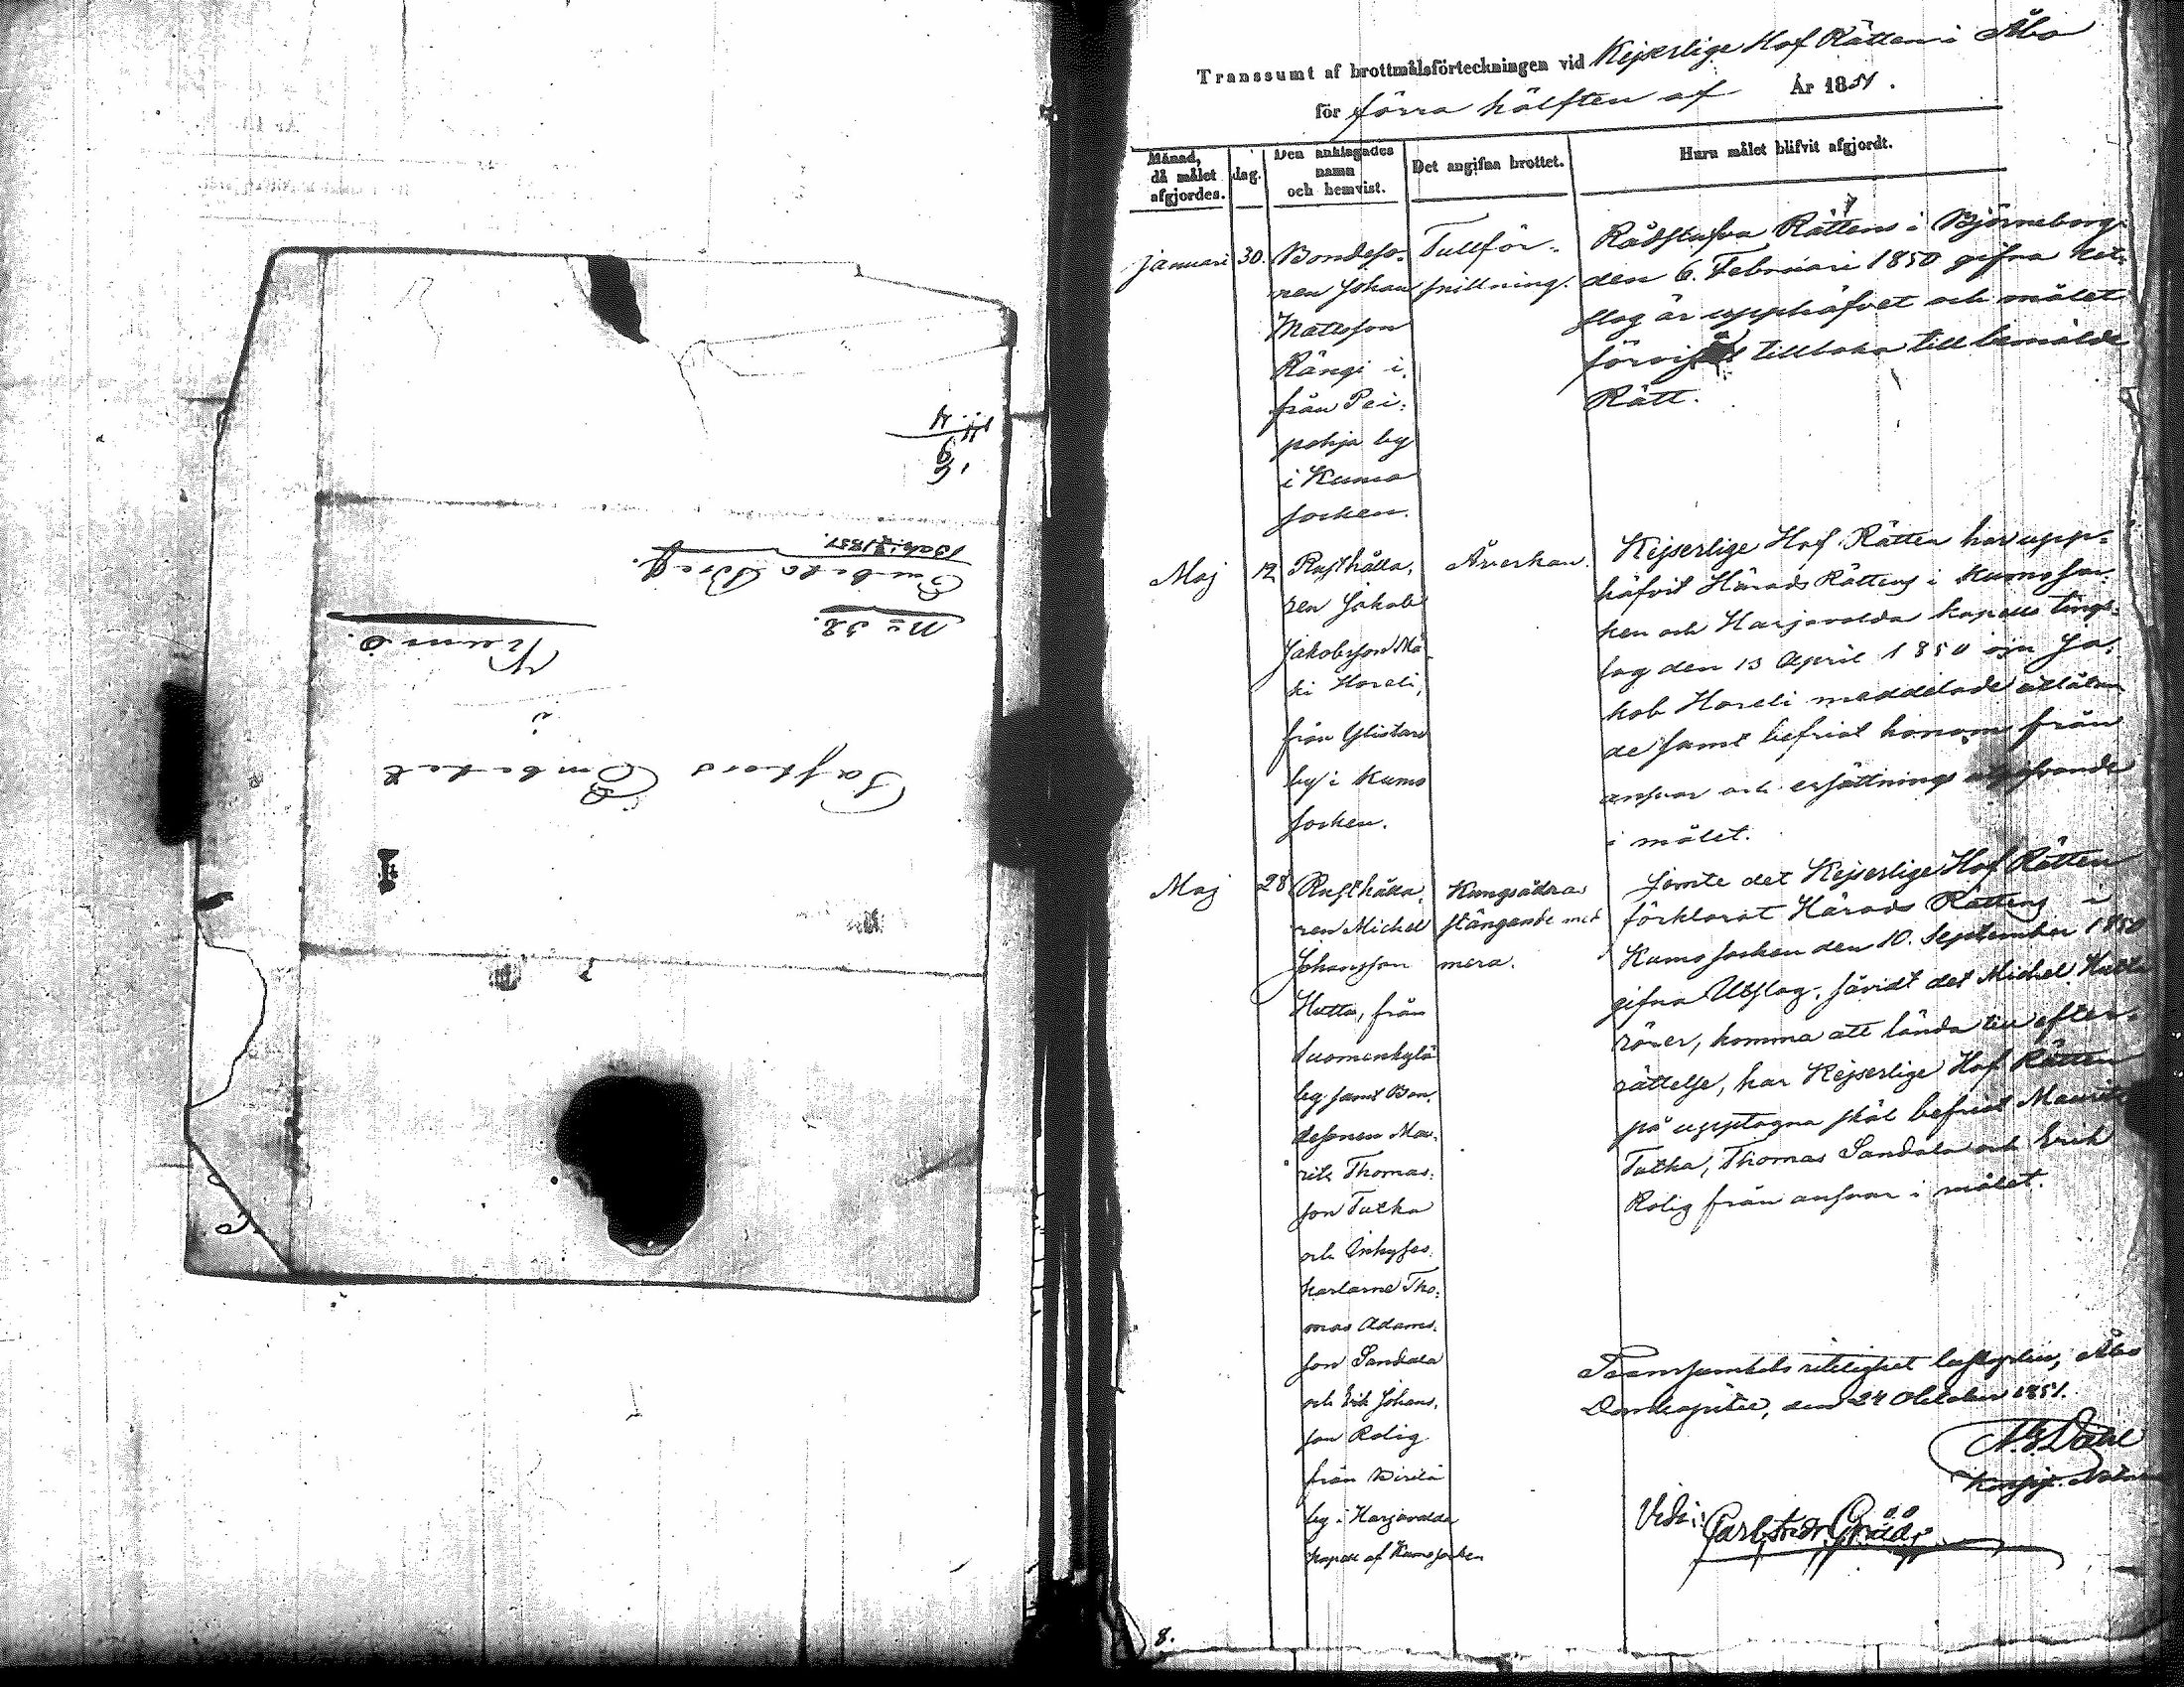 Pastors Embetet
i
Kumo.
No 32.
Embets Bref.
Transsumt af brottmålsförteckningen vid Kejserlige Hof Rätten i Åbo
för förra hälften af År 1851.
Månad, då målet afgjordes.
dag.
Den anklagades namn och hemvist.
Det angifna brottet.
Huru målet blifvit afgjordt.
Januari 30.
Bondeso-
nen Johan
Mattsson
Rängi i,
från Pei-
pohja by
i Kumo
socken.
Tullför-
snillning.
Rådstufva Rättens i Björneborg
den 6. Februari 1850 gifna Ut-
slag är upphäfvet och målet
förvist tillbaka till bemälde
Rätt.
Maj 12
Rusthålla-
ren Jakob
Jakobsson Mä-
ki Horeli,
från Ylistaro
by i Kumo
socken.
Åverkan.
Kejserlige Hof Rätten har upp-
häfvit Härads Rättens i Kumo soc-
ken och Harjavalda kapells tings-
lag den 13 April 1850 öfver Ja-
kob Horeli meddelade utlåtan-
de samt befriat honom från
ansvar och ersättnings utgifvande
i målet.
Maj 28
Rusthålla-
ren Michel
Johansson
Hutto, från
Suomenkylä
by samt Bon-
desonen Mau-
ritz Thomas-
son Tutka
och Inhyses-
karlarne Tho-
mas Adams-
son Sandala
och Erik Johans-
son Rolig
från Pirilä
by i Harjavalda
kapell af Kumo socken
Kungsådras
stängande med
mera.
Jemte det Kejserlige Hof Rätten
förklarat Härads Rättens i
Kumo socken den 10. September 1850
gifna Utslag, såvidt det Michel Hutto
rörer, komma att lända till efter-
rättelse, har Kejserlige Hof Rätten
på upptagna skäl befriat Mauritz
Tutka, Thomas Sandala och Erik
Rolig från ansvar i målet.
Transsumtets riktighet bestyrkes, Åbo
Domkapitel, den 24 October 1851.
Vidi:
8.